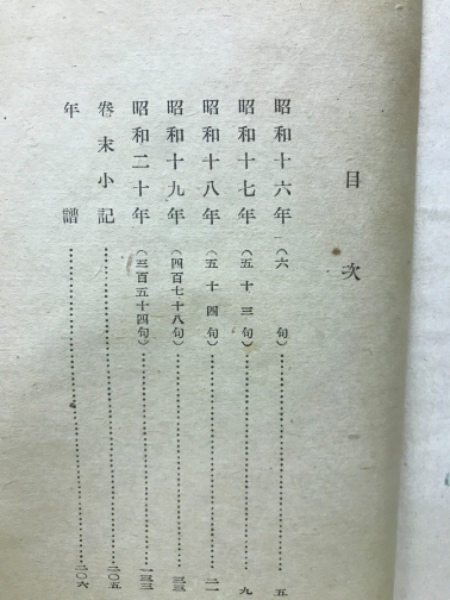 目次
昭和十六年(六句)……五
昭和十七年(五十三句)……九
昭和十八年(五十四句)……二一
昭和十九年(四百七十八句)……三三
昭和二十年(三百五十四句)……一三三
卷末小記……二〇五
年譜……二〇六